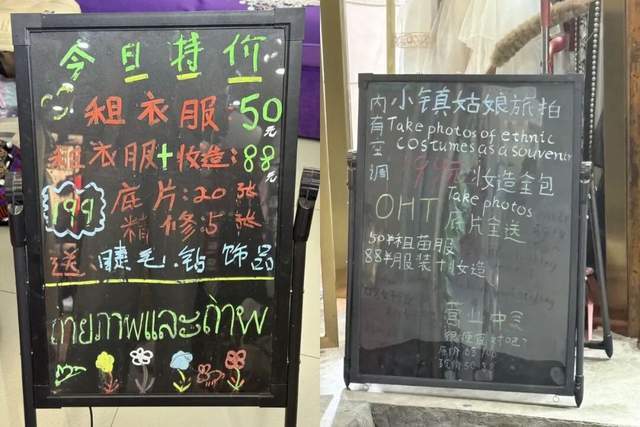 今日特价
租衣服:50元
租衣服+妆造:88元
199
底片:20张
精修5张
送:睫毛.钻 饰品
ถ่ายภาพและถ่าพ
内有空调
小镇姑娘旅拍
Take photos of ethnic
costumes as a souvenir
199元:妆造全包
OHT Take photos
底片全送
50¥租苗服
88¥服装+妆造
营业中
很便宜对吧?